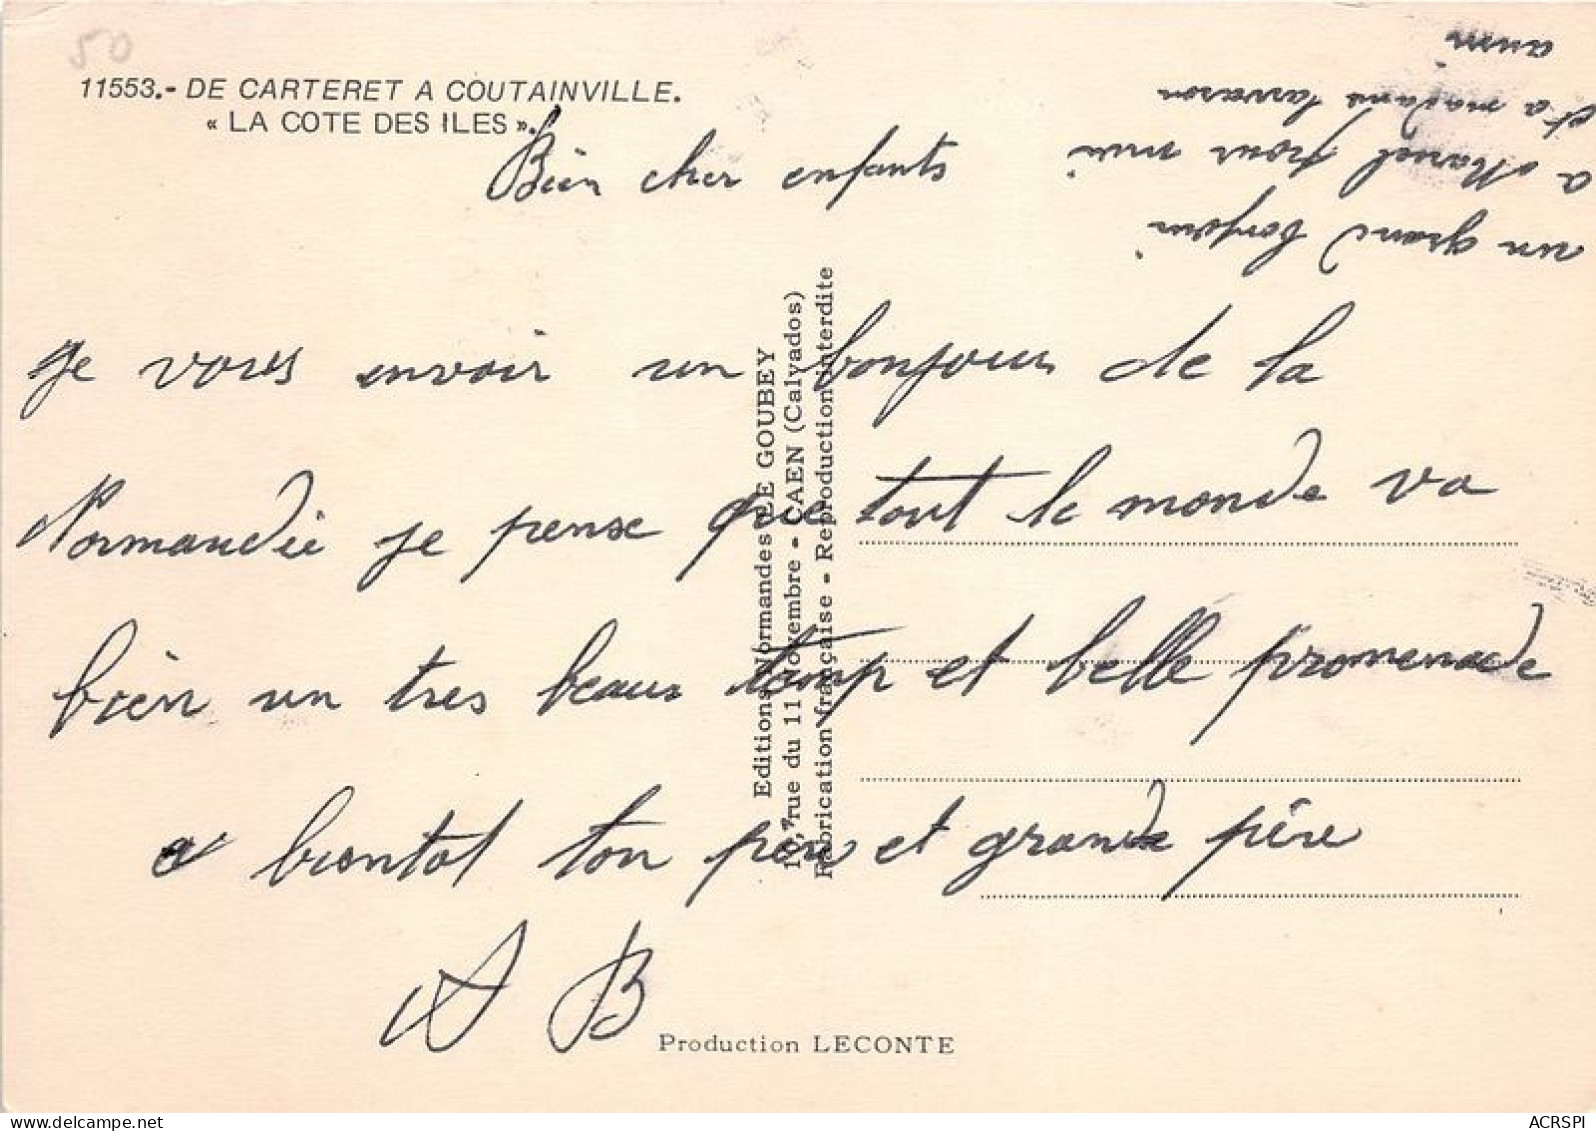 50
11553.- DE CARTERET A COUTAINVILLE.
« LA COTE DES ILES ».
Bien cher enfants
je vous envoir un bonjour de la
Normandie je pense que tout le monde va
bien un tres beau temp et belle promenade
a bientot ton père et grande père
A B
un grand bonjour
a Marcel pour moi
et a madame
aussi
Editions Normandes LE GOUBEY
10, rue du 11 Novembre - CAEN (Calvados)
Fabrication française - Reproduction interdite
Production LECONTE
ACRSPI